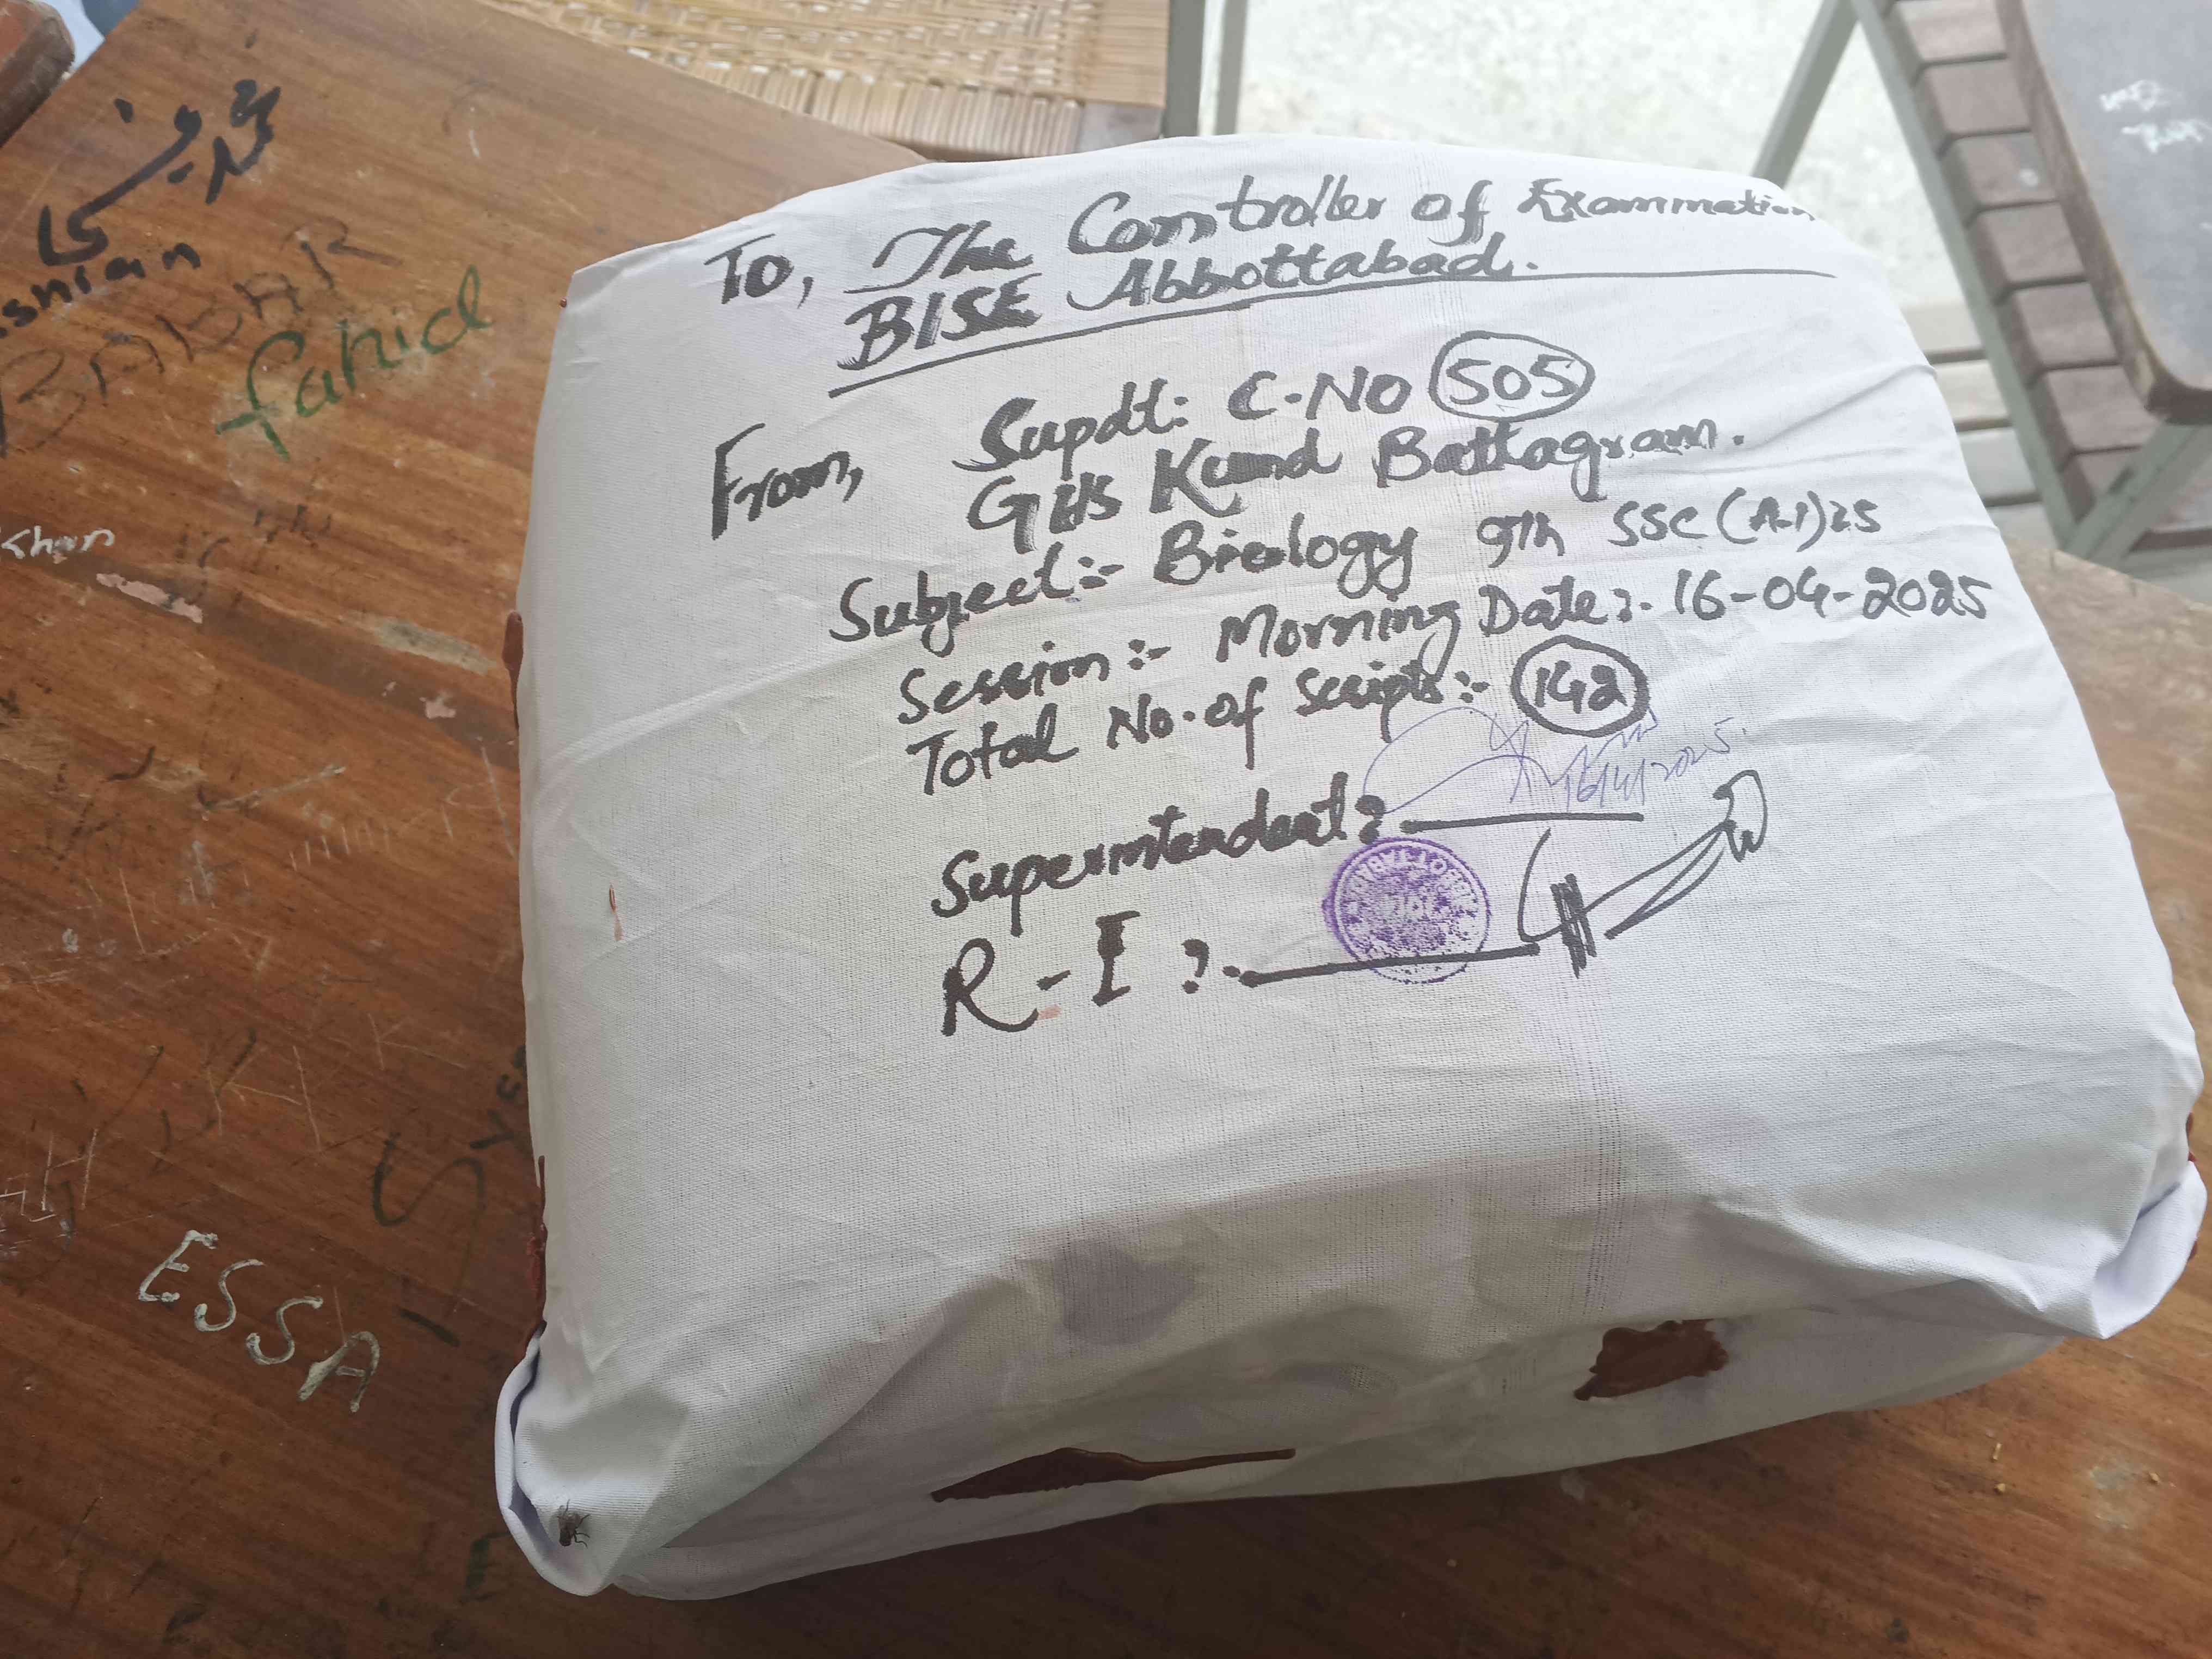 To, The Controller of Exammation
BISE Abbottabad.
From, Supdt: C-NO 505
GHS Kund Battagram.
Subject:- Biology 9th SSC (A-1) 25
Session:- Morning Date:- 16-04-2025
Total No. of Scripts:- 142
16/4/2025.
Superintendent:
R-I :-
BABAR
fahid
Khan
ESSA